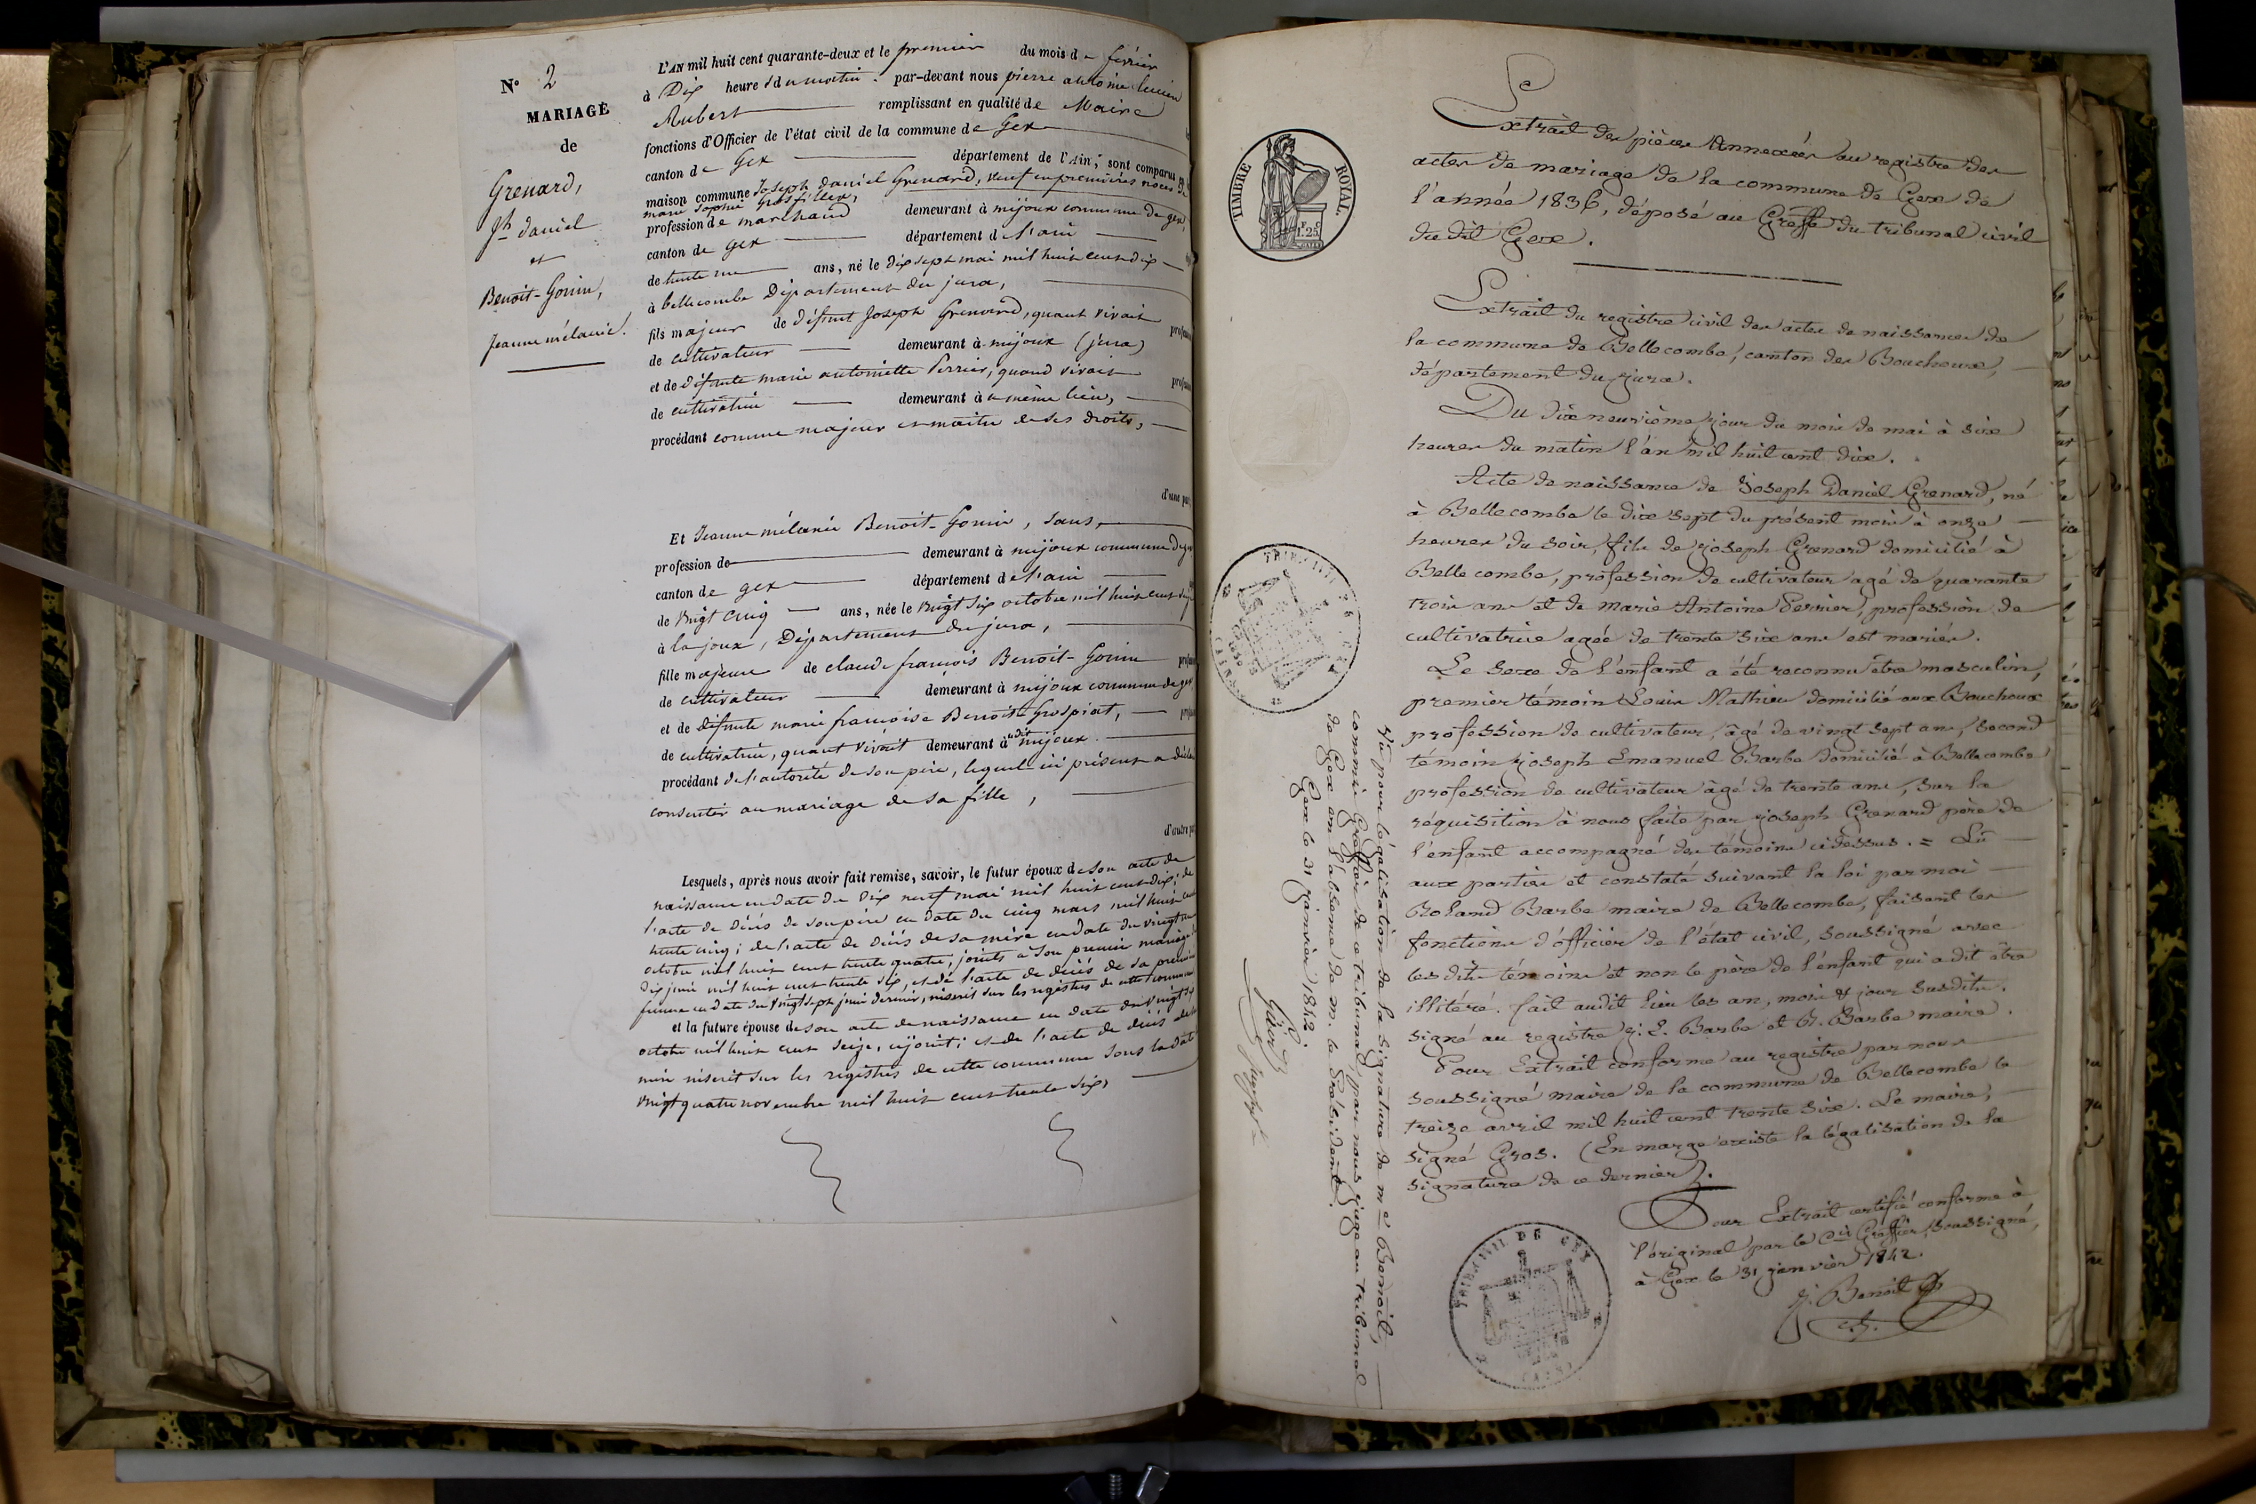 N° 2
MARIAGE
de
Grenard,
Jh daniel
et
Benoit-Gonin,
Jeanne mélanie.
L'AN mil huit cent quarante-deux et le premier du mois de février
à Dix heures du matin. par-devant nous pierre antoine lucien
Aubert remplissant en qualité de Maire
fonctions d'Officier de l'état civil de la commune de Gex
canton de Gex département de l'Ain, sont comparus
maison commune Joseph daniel Grenard, veuf en premières noces de
marie Sophie Grosfillex,
profession de marchand demeurant à mijoux commune de gex,
canton de gex département de l'ain
de trente un ans, né le dix sept mai mil huit cent dix
à bellecombe Département du jura,
fils majeur de défunt Joseph Grenard, quant vivait
de cultivateur demeurant à mijoux (jura)
et de défunte marie antoinette Perrier, quand vivait
de cultivatrice demeurant à même lieu,
procédant comme majeur et maitre de ses droits,
d'une part
Et Jeanne mélanie Benoit-Gonin, sans
profession de demeurant à mijoux commune de gex
canton de gex département de l'ain
de vingt cinq ans, née le vingt six octobre mil huit cent
à la joux, Département du jura,
fille majeure de claude françois Benoit-Gonin
de cultivateur demeurant à mijoux commune de gex
et de défunte marie françoise Benoit-Gros piat,
de cultivatrice, quant vivait demeurant à udit mijoux.
procédant de l'autorité de son père, lequel ici présent a déclaré
consentir au mariage de sa fille,
d'autre part
Lesquels, après nous avoir fait remise, savoir, le futur époux de son acte de
naissance en date du dix neuf mai mil huit cent dix; de
l'acte de décès de son père en date du cinq mars mil huit cent
trente cinq; de l'acte de décès de sa mère en date du vingt
octobre mil huit cent trente quatre, joints à son premier mariage
dix juin mil huit cent trente six, et de l'acte de décès de sa première
femme en date du vingt sept juin dernier, inscrit sur les registres de cette commune
et la future épouse de son acte de naissance en date du vingt six
octobre mil huit cent seize, cijoint; et de l'acte de décès de sa
mère inscrit sur les registres de cette commune sous la date
vingt quatre novembre mil huit cent trente six,
TIMBRE ROYAL
Extrait des pièces Annexées au registre des
actes de mariage de la commune de Gex de
l'année 1836, déposé au Greffe du tribunal civil
du dit Gex.
Extrait du registre civil des actes de naissances de
la commune de Bellecombe, canton des Bouchoux,
département du jura.
Du dix neuvième jour du mois de mai à six
heures du matin l'an mil huit cent dix.
Acte de naissance de Joseph Daniel Grenard, né
à Bellecombe le dix sept du présent mois à onze
heures du soir, fils de joseph Grenard domicilié à
Bellecombe, profession de cultivateur agé de quarante
trois ans et de marie Antoine Perrier, profession de
cultivatrice agée de trente six ans est mariés.
Le sexe de l'enfant a été reconnu être masculin,
premier témoin Louis Mathieu domicilié aux Bouchoux
profession de cultivateur, âgé de vingt sept ans, second
témoin joseph Emanuel Barbe domicilié à Bellecombe
profession de cultivateur âgé de trente ans, sur la
réquisition à nous faite par joseph Grenard père de
l'enfant accompagné des témoins cidessus. = Lû
aux parties et constaté suivant la loi par moi
Roland Barbe maire de Bellecombe, faisant les
fonctions d'officier de l'état civil, soussigné avec
les dits témoins et non le père de l'enfant qui a dit être
illitéré. fait audit lieu les an, mois & jour susdits.
signé au registre j. E. Barbe et R. Barbe maire.
Pour Extrait conforme au registre par nous
soussigné maire de la commune de Bellecombe le
treize avril mil huit cent trente six. Le maire,
signé Gros. (En marge existe la légalisation de la
signature de ce dernier).
Pour Extrait certifié conforme à
l'original par le Cis Greffier, soussigné,
à Gex le 31 janvier 1842.
j. Benoit
Vu pour légalisation de la signature de me Benoit,
commis Greffier de ce tribunal, par nous juge au tribunal
de Gex en l'absence de m. le Président.
Gex le 31 janvier 1842.
TRIBUNAL DE GEX
(AIN)